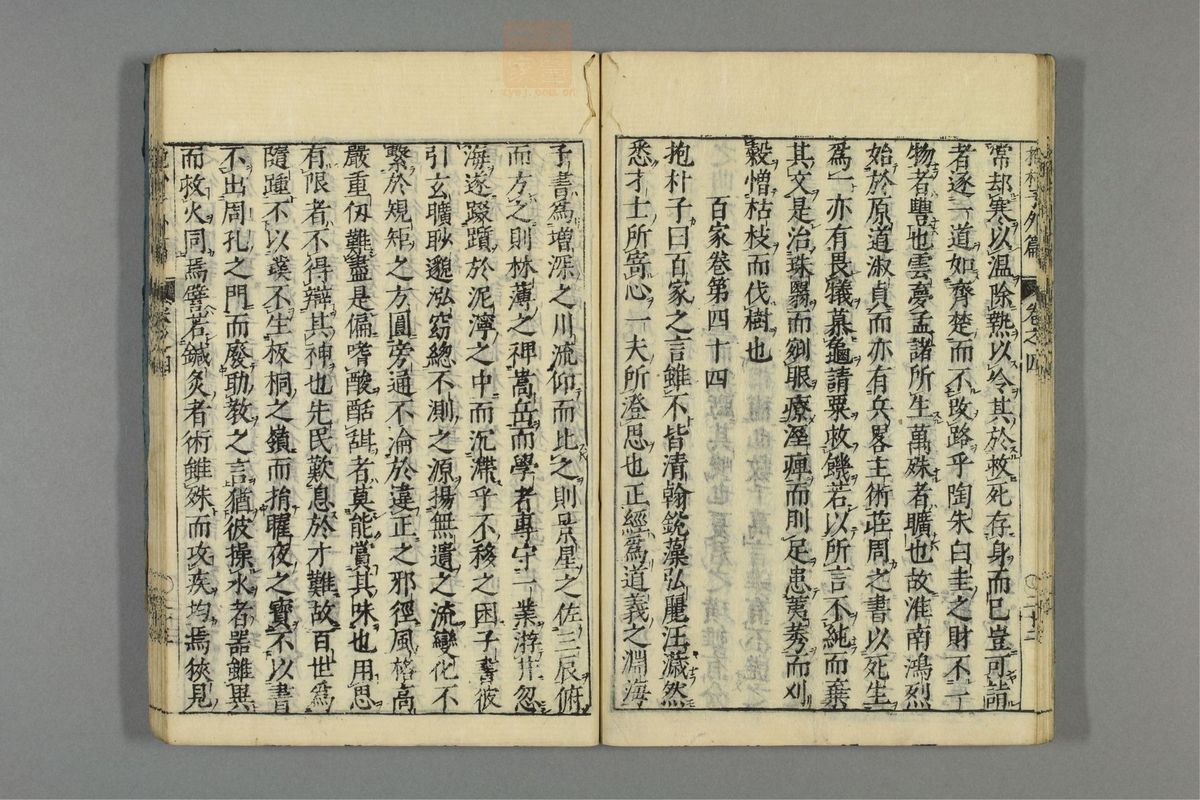 常却寒以温除熱以冷其於救死存身而已豈可詣
者逐一道如齊楚而不改路乎陶朱白圭之財不一
物者豐也雲夢孟諸所生萬殊者曠也故淮南鴻烈
始於原道淑貞而亦有兵畧主術莊周之書以死生
爲一亦有畏犧慕龜請粟救饑若以所言不純而棄
其文是治珠翳而剜眼療溼痺而刖足患荑莠而刈
穀憎枯枝而伐樹也
百家卷第四十四
抱朴子曰百家之言雖不皆清翰銳藻弘麗汪濊然
悉才士所寄心一夫所澄思也正經爲道義之淵海
子書爲增深之川流仰而比之則景星之佐三辰俯
而方之則林薄之裨嵩岳而學者專守一業游井忽
海遂踸躓於泥濘之中而沉滯乎不移之困子書彼
引玄曠眇邈泓窈總不測之源揚無遺之流變化不
繫於規矩之方圓旁通不淪於違正之邪徑風格高
嚴重仞難盡是偏嗜酸酷甜者莫能賞其味也用思
有限者不得辯其神也先民歎息於才難故百世爲
隨踵不以璞不生板桐之嶺而捐曜夜之寶不以書
不出周孔之門而廢助教之言猶彼操水者器雖異
而救火同焉譬若鍼灸者術雖殊而攻疾均焉狹見
抱朴子外篇
卷之四